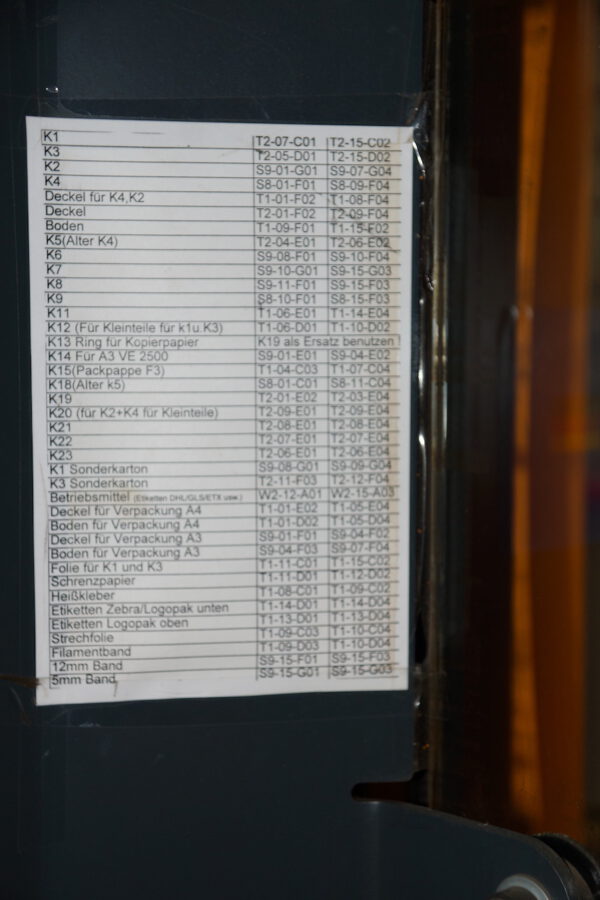 K1 T2-07-C01 T2-15-C02
K3 T2-05-D01 T2-15-D02
K2 S9-01-G01 S9-07-G04
K4 S8-01-F01 S8-09-F04
Deckel für K4,K2 T1-01-F02 T1-08-F04
Deckel T2-01-F02 T2-09-F04
Boden T1-09-F01 T1-15-F02
K5(Alter K4) T2-04-E01 T2-06-E02
K6 S9-08-F01 S9-10-F04
K7 S9-10-G01 S9-15-G03
K8 S9-11-F01 S9-15-F03
K9 S8-10-F01 S8-15-F03
K11 T1-06-E01 T1-14-E04
K12 (Für Kleinteile für k1u.K3) T1-06-D01 T1-10-D02
K13 Ring für Kopierpapier K19 als Ersatz benutzen !
K14 Für A3 VE 2500 S9-01-E01 S9-04-E02
K15(Packpappe F3) T1-04-C03 T1-07-C04
K18(Alter k5) S8-01-C01 S8-11-C04
K19 T2-01-E02 T2-03-E04
K20 (für K2+K4 für Kleinteile) T2-09-E01 T2-09-E04
K21 T2-08-E01 T2-08-E04
K22 T2-07-E01 T2-07-E04
K23 T2-06-E01 T2-06-E04
K1 Sonderkarton S9-08-G01 S9-09-G04
K3 Sonderkarton T2-11-F03 T2-12-F04
Betriebsmittel (Etiketten DHL/GLS/ETX usw.) W2-12-A01 W2-15-A03
Deckel für Verpackung A4 T1-01-E02 T1-05-E04
Boden für Verpackung A4 T1-01-D02 T1-05-D04
Deckel für Verpackung A3 S9-01-F01 S9-04-F02
Boden für Verpackung A3 S9-04-F03 S9-07-F04
Folie für K1 und K3 T1-11-C01 T1-15-C02
Schrenzpapier T1-11-D01 T1-12-D02
Heißkleber T1-08-C01 T1-09-C02
Etiketten Zebra/Logopak unten T1-14-D01 T1-14-D04
Etiketten Logopak oben T1-13-D01 T1-13-D04
Strechfolie T1-09-C03 T1-10-C04
Filamentband T1-09-D03 T1-10-D04
12mm Band S9-15-F01 S9-15-F03
5mm Band S9-15-G01 S9-15-G03